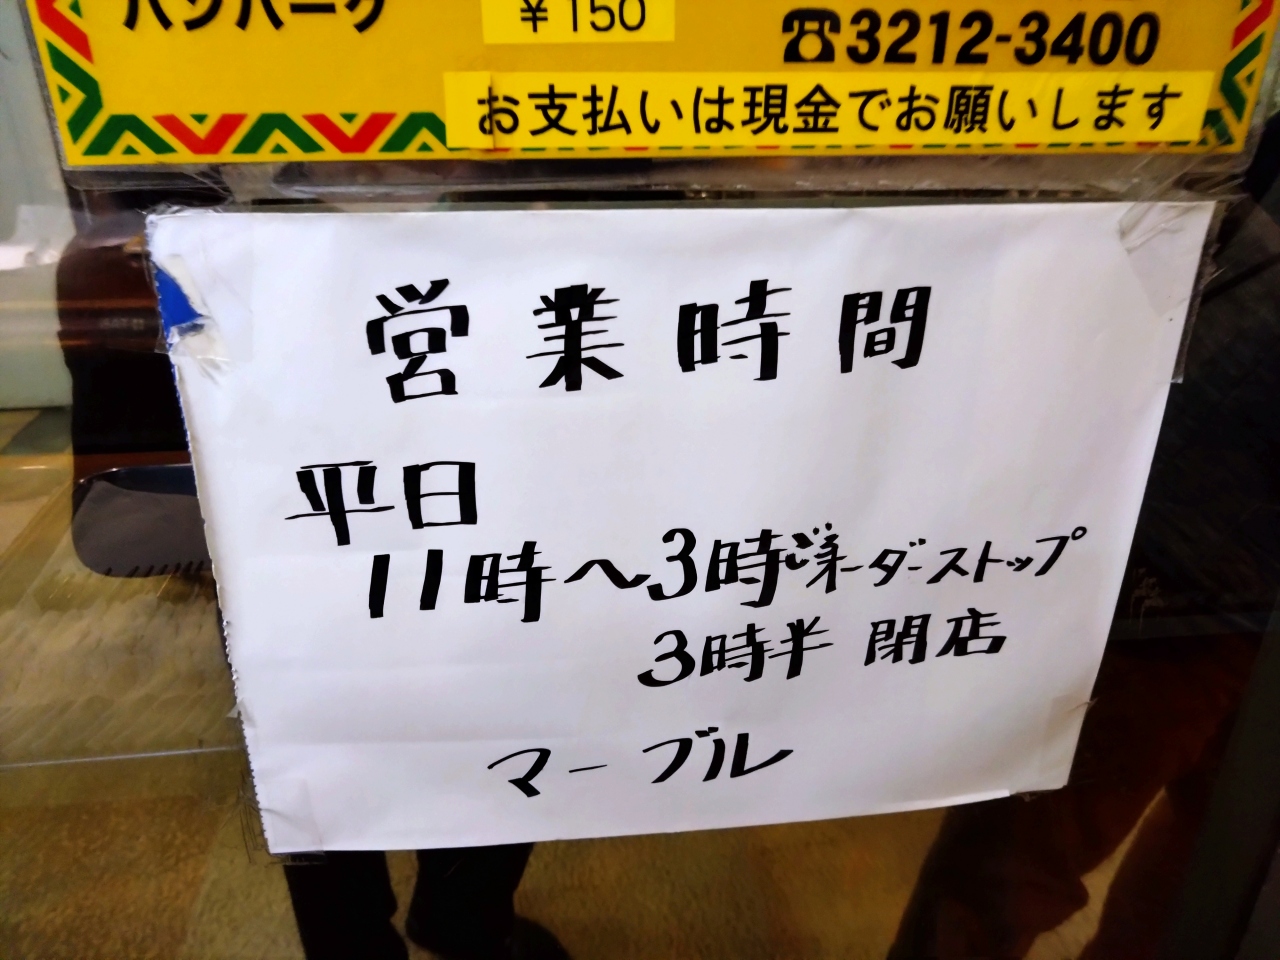 ハンバーグ
¥150
☎3212-3400
お支払いは現金でお願いします
営業時間
平日
11時〜3時オーダーストップ
3時半 閉店
マーブル